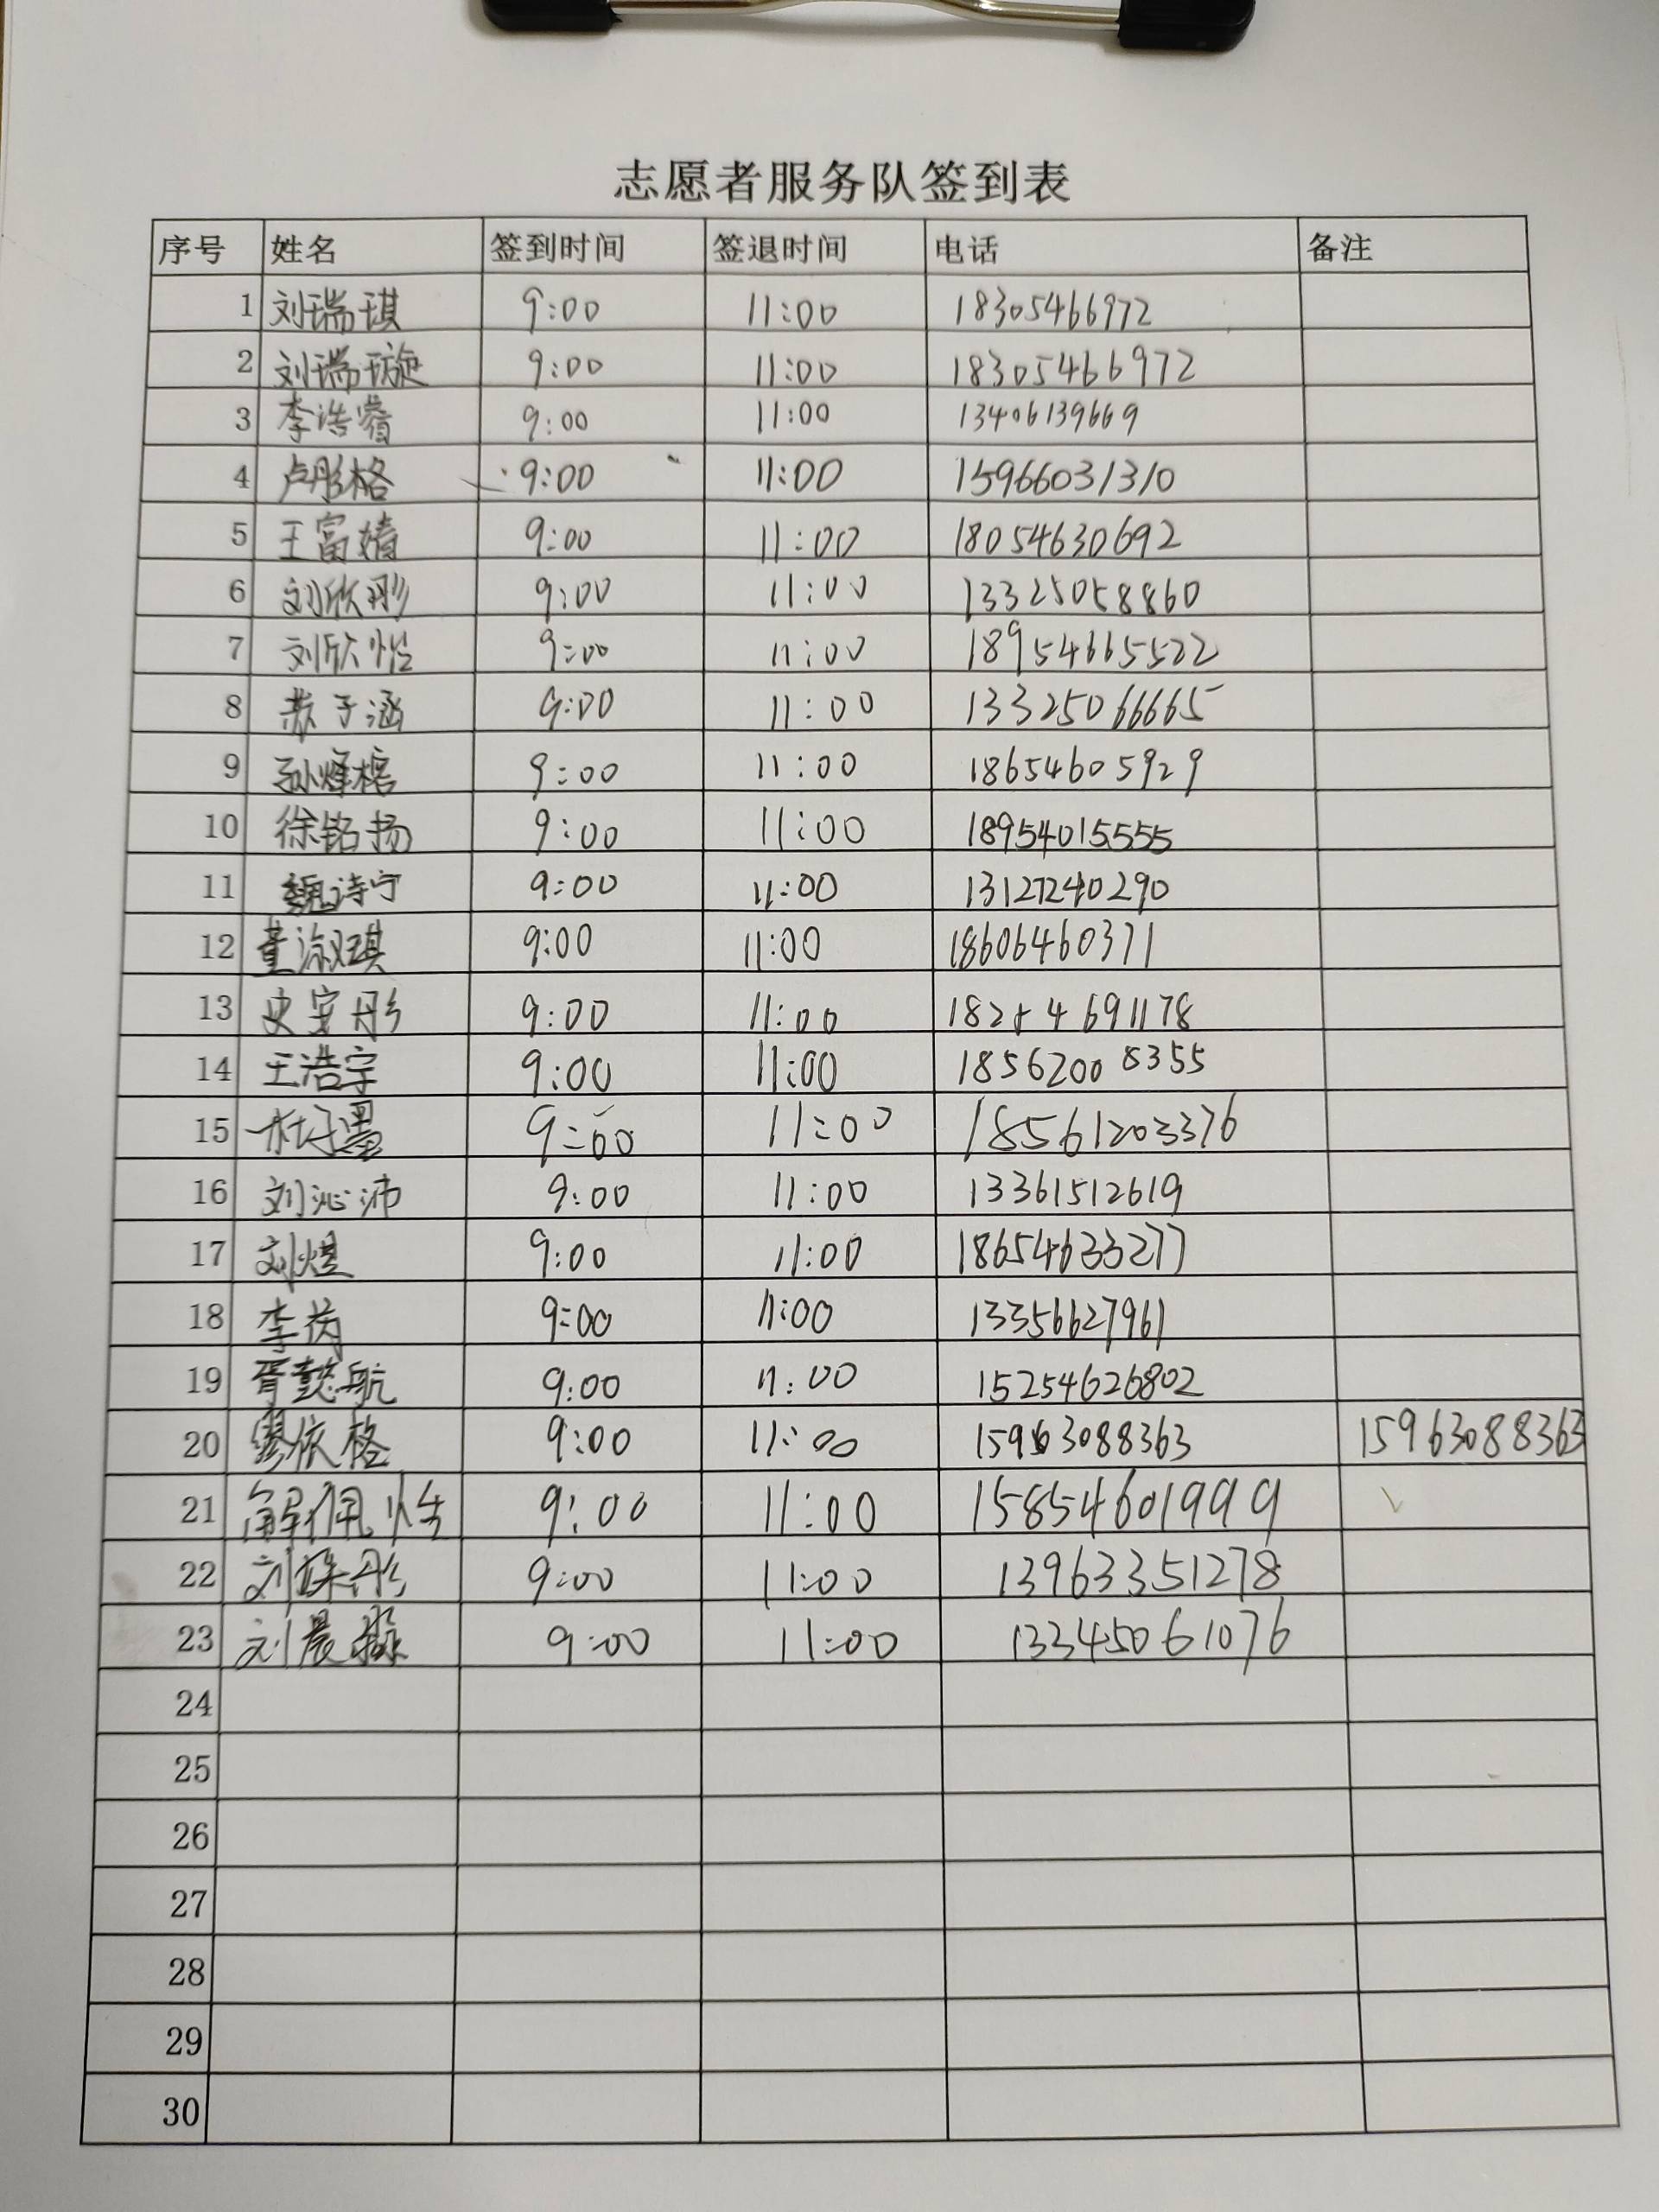 志愿者服务队签到表
序号 姓名 签到时间 签退时间 电话 备注
1 刘瑞琪 9:00 11:00 18305466972
2 刘瑞璇 9:00 11:00 18305466972
3 李浩睿 9:00 11:00 13406139669
4 卢彤格 9:00 11:00 15966031310
5 王富婧 9:00 11:00 18054630692
6 刘欣彤 9:00 11:00 13325058860
7 刘欣怡 9:00 11:00 18954665522
8 苏于涵 9:00 11:00 13325066665
9 9:00 11:00 18654605929
10 徐铭扬 9:00 11:00 18954015555
11 魏诗宁 9:00 11:00 13127240290
12 董淑琪 9:00 11:00 18606460371
13 9:00 11:00
14 王浩宇 9:00 11:00 18562008355
15 杜子墨 9:00 11:00 18561203376
16 刘沁沛 9:00 11:00 13361512619
17 刘煜 9:00 11:00 18654633277
18 李芮 9:00 11:00 13356627961
19 胥懿航 9:00 11:00 15254626802
20 缪依格 9:00 11:00 15963088363 15963088363
21 解佩怡 9:00 11:00 15854601999
22 9:00 11:00 13963351278
23 9:00 11:00 13345061076
24
25
26
27
28
29
30